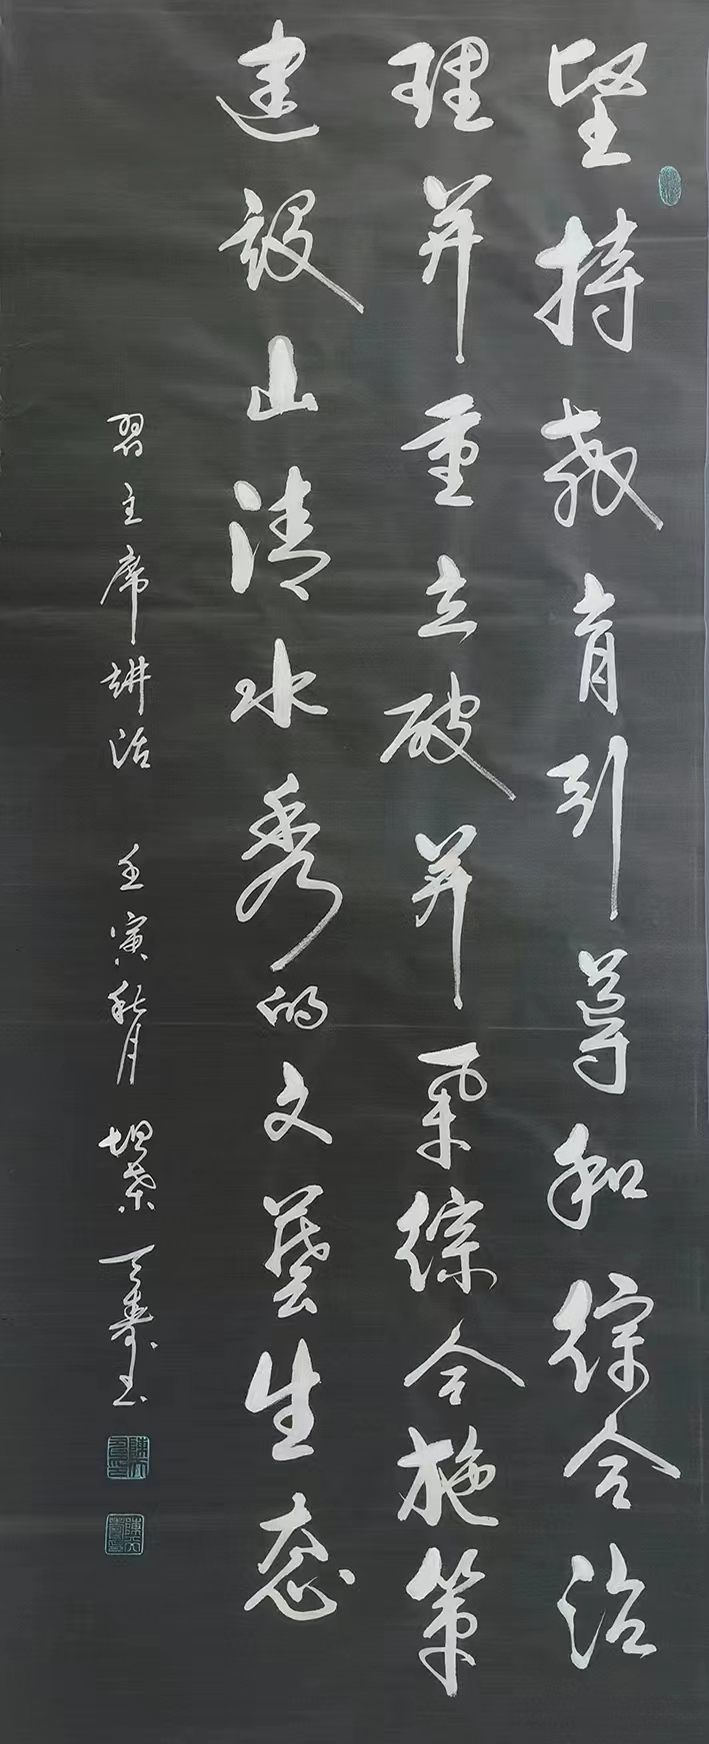 坚持教育引导和综合治
理并重立破并举综合施策
建设山清水秀的文藝生态
習主席讲话 壬寅秋月 天寿